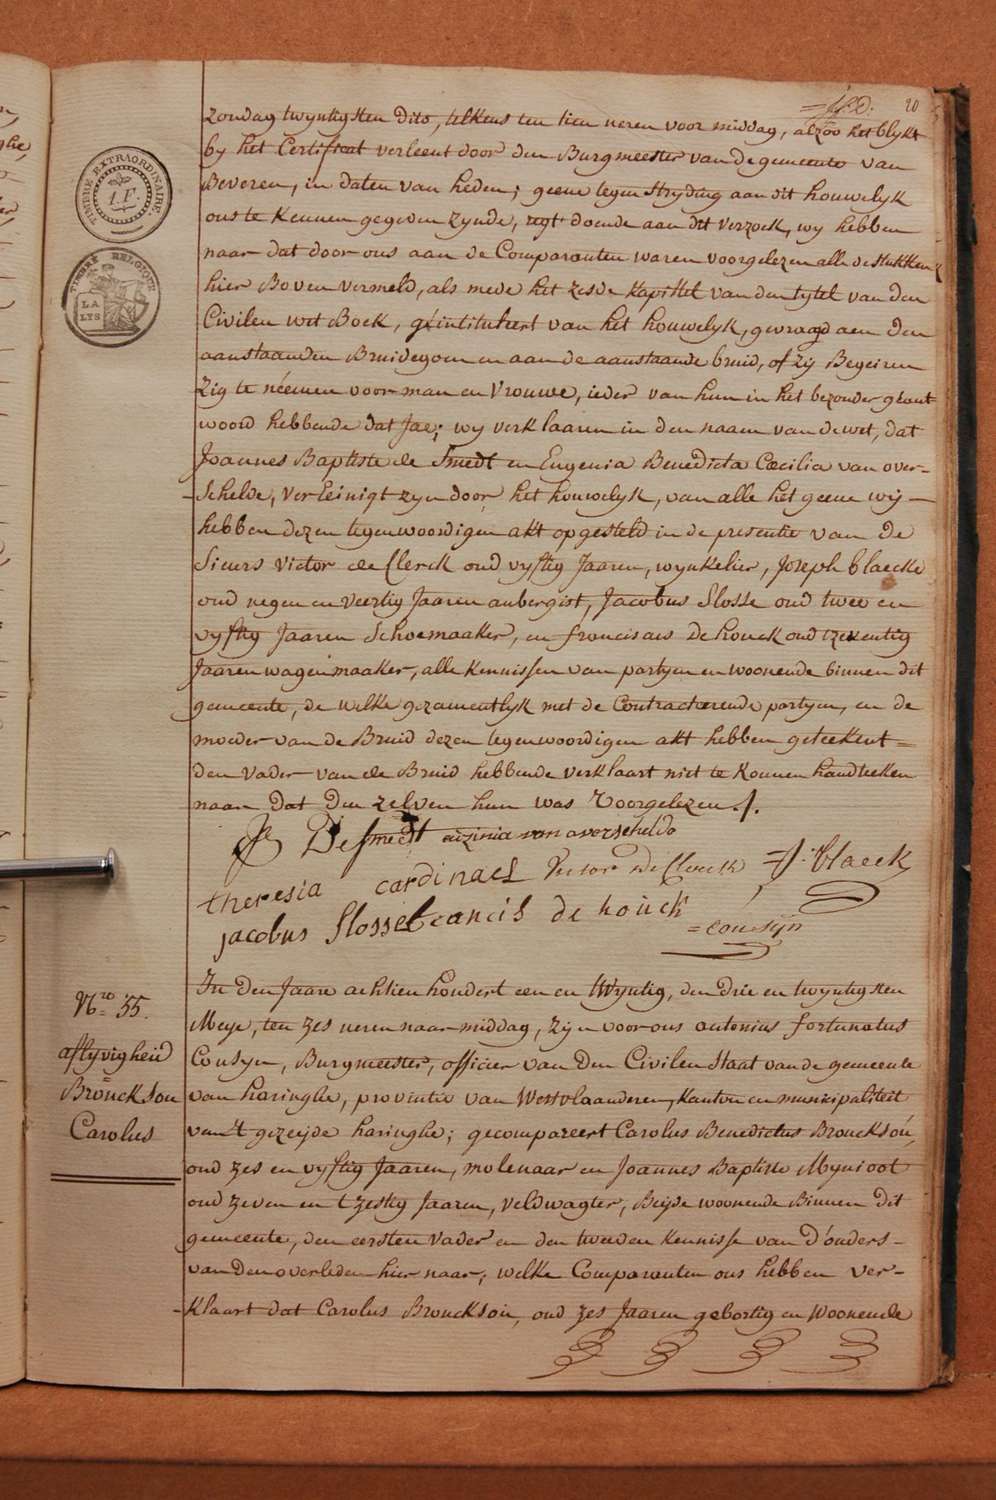 20
TIMBRE EXTRAORDINAIRE.
1.F.
TIMBRE BELGIQUE
LA
LYS
zondag twyntigsten dito, telkens ten tien ueren voor middag, alzoo het blykt
by het Certificat verleent door den Burgmeester van de gemeente van
Beveren, in daten van heden; geene tegen strydinq aan dit houwelyk
ons te kennen gegeven zynde, regt doende aan dit verzoek, wy hebben
naar dat door ons aan de Comparanten waren voorgelezen alle de stukken
hier Boven vermeld, als mede het zesde kapittel van den tytel van den
Civilen wet Boek, geintituleert van het houwelyk, gevraagd aen den
aanstaanden Bruidegom en aan de aanstaande bruid, of zy Begeiren
zig te néemen voor man en Vrouwe, ieder van hun in het bezonder geant-
woord hebbende dat Jae; wy verklaaren in den naam van de wet, dat
Joannes Baptiste de Smedt en Eugenia Benedicta Cæcilia van over-
-Schelde, verEinigt zyn door het houwelyk, van alle het geene wij
hebben dezen tegenwoordigen akt opgesteld in de presentie van de
Sieurs Victor de Clerck oud vyftig Jaaren, wynkelier, Joseph Blaecke
oud negen en veertig Jaaren aubergist, Jacobus Slosse oud twee en
vyftig Jaaren Schoemaaker, en franciscus De houck oud tzeventig
Jaaren wagenmaaker, alle kennissen van partyen en woonende binnen dit
gemeente, de welke gezamentlyk met de Contracterende partyen, en de
moeder van de Bruid dezen tegenwoordigen akt hebben geteekent=
den vader van de Bruid hebbende verklaart niet te konnen handteeken
naar dat den zelven hun was Voorgelezen ./.
JB DeSmedt euzinia van overschelde
theresia cardinael Victor De Clerck =J. Blaeck
jacobus Slosse francis de houck
=Cousÿn
Nro 55.
aflyvigheid
Brouckson
Carolus
In Den Jaare achtien hondert een en twyntig, den drie en twyntigsten
Meye, ten zes ueren naar middag, zijn voor ons antonius fortunatus
Cousyn, Burgmeester, officier van Den Civilen Staat van de gemeente
van haringhe, provintie van Westvlaanderen, kanton en municipaliteit
van 't gezeijde haringhe; gecompareert Carolus Benedictus Brouckson,
oud zes en vyftig Jaaren, molenaar en Joannes Baptiste Mynioot
oud zeven en tzestig Jaaren, veldwagter, Beijde woonende Binnen dit
gemeente, den eersten vader en den tweeden kennisse van d'ouders-
van den overleden hier naar; welke Comparanten ons hebben ver-
-klaart dat Carolus Brouckson, oud zes Jaaren gebortig en Woonende